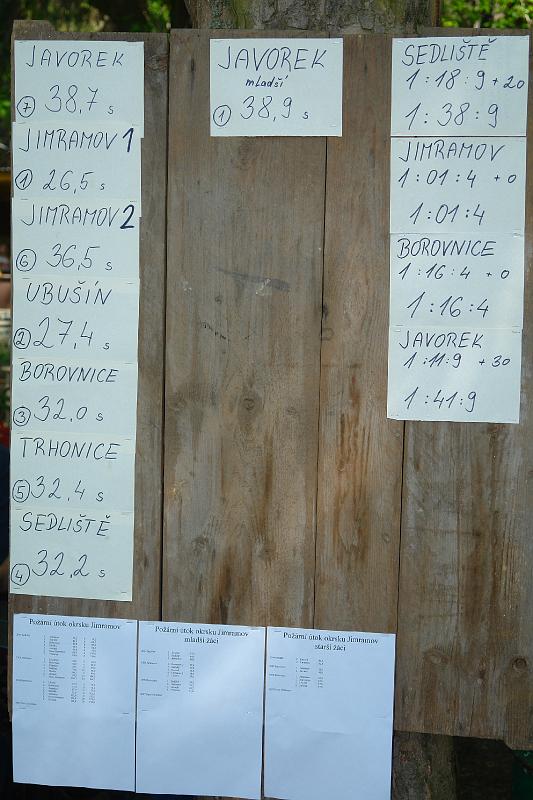 JAVOREK
7 38,7 s
JIMRAMOV 1
1 26,5 s
JIMRAMOV 2
6 36,5 s
UBUŠÍN
2 27,4 s
BOROVNICE
3 32,0 s
TRHONICE
5 32,4 s
SEDLIŠTĚ
4 32,2 s
JAVOREK
mladší
1 38,9 s
SEDLIŠTĚ
1:18:9 +20
1:38:9
JIMRAMOV
1:01:4 +0
1:01:4
BOROVNICE
1:16:4 +0
1:16:4
JAVOREK
1:11:9 +30
1:41:9
Požární útok okrsku Jimramov
Požární útok okrsku Jimramov
mladší žáci
Požární útok okrsku Jimramov
starší žáci